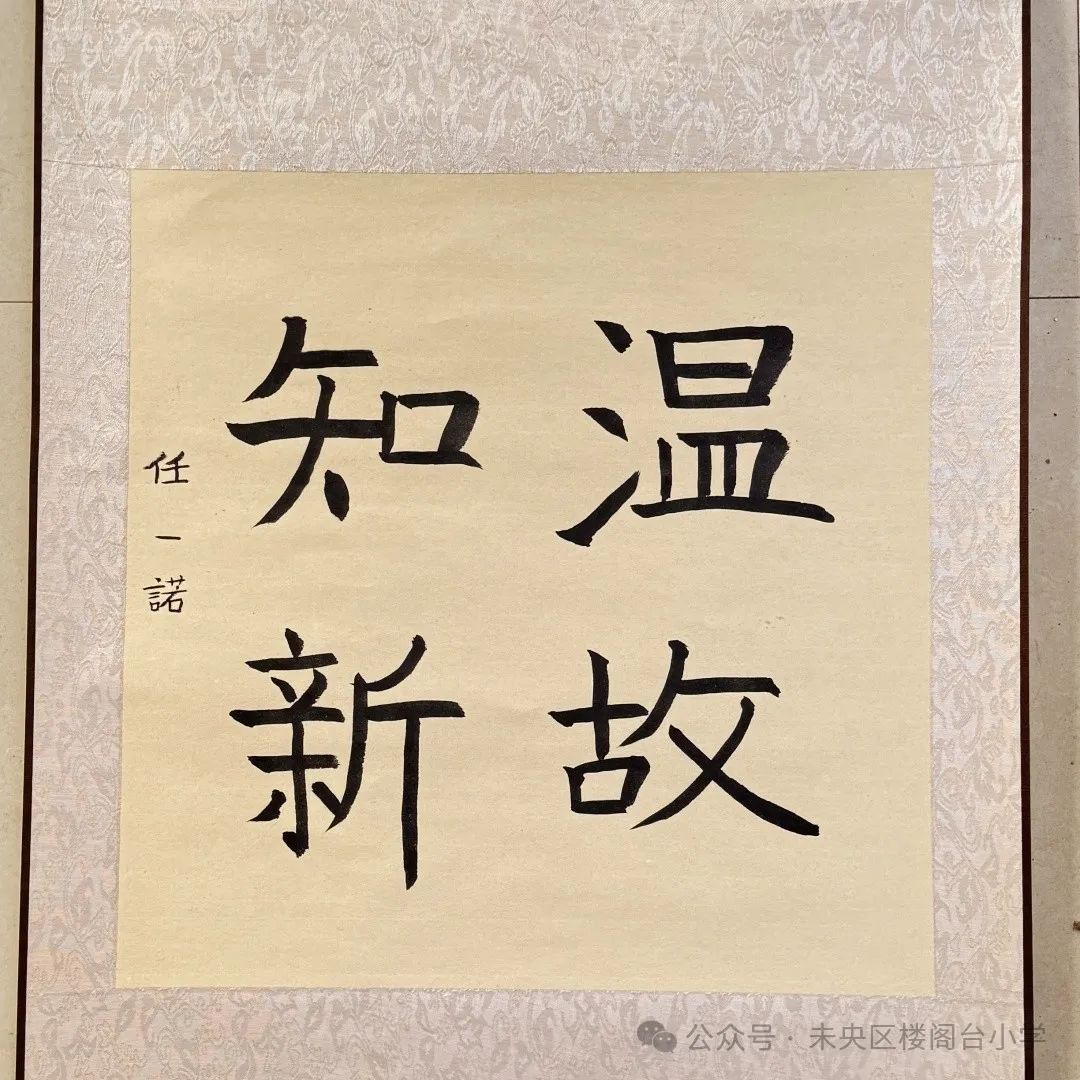 温故
知新
任一諾
公众号 · 未央区楼阁台小学